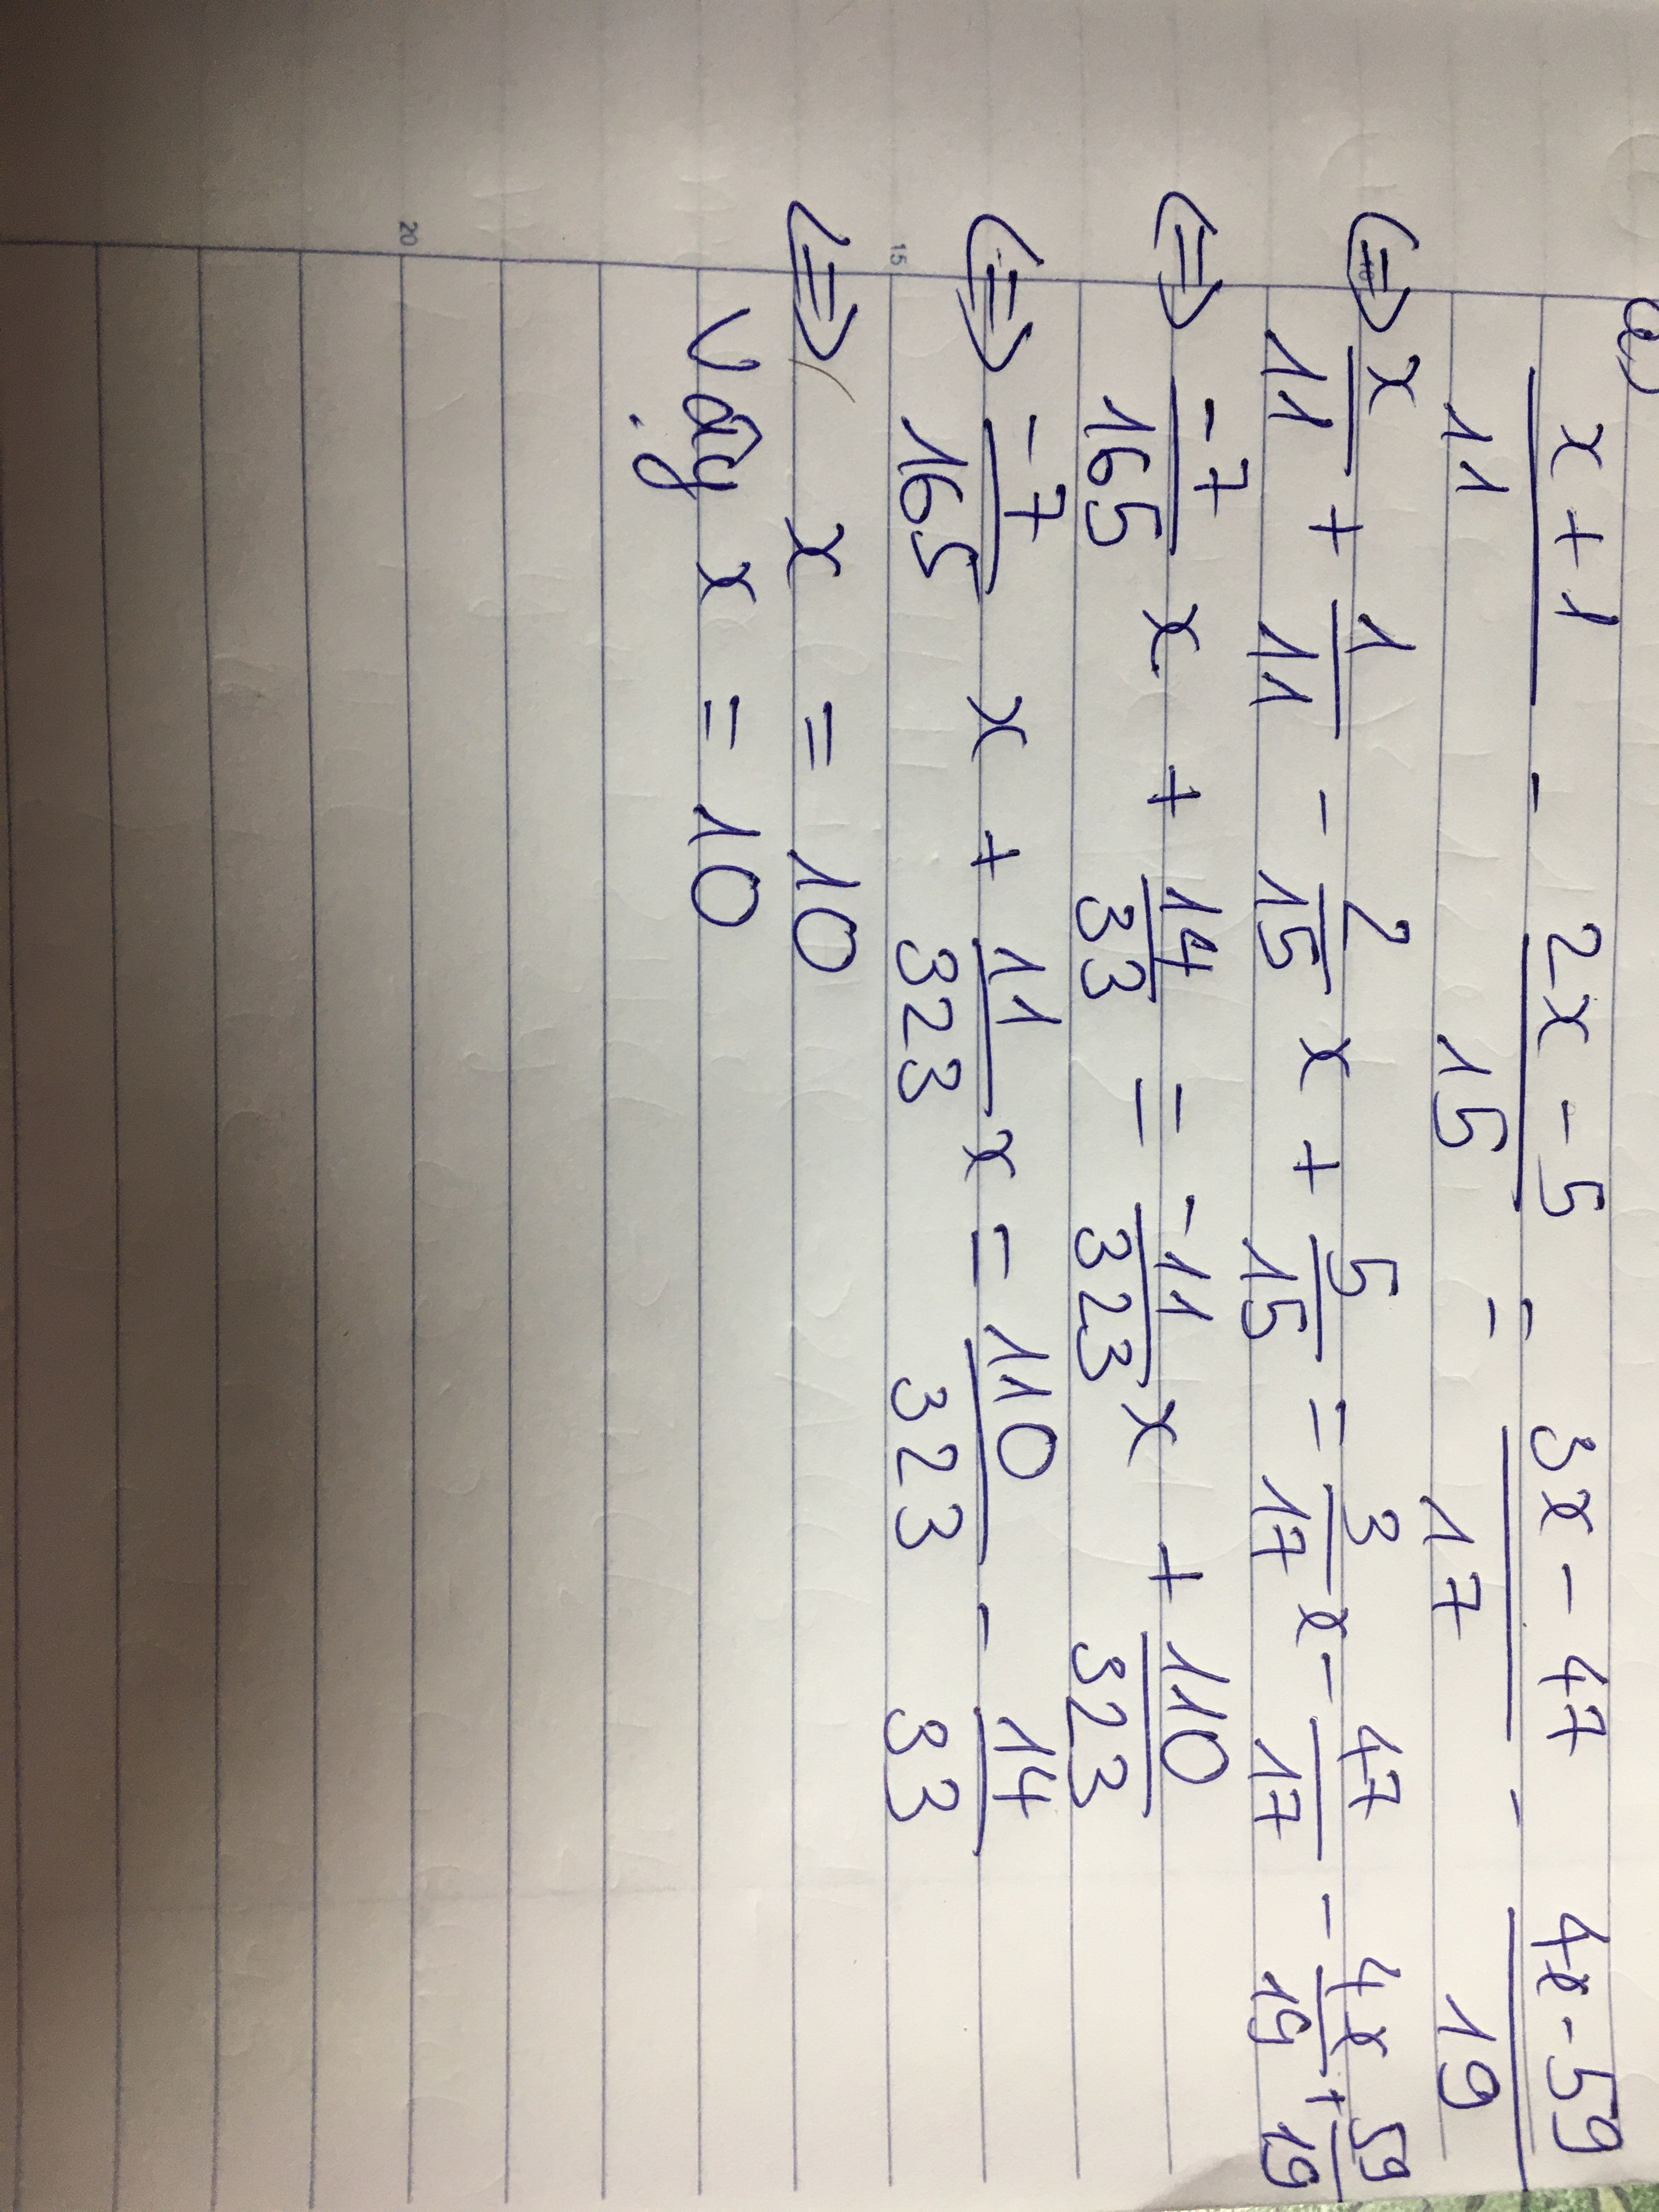 a)
x + 1 / 11 - 2x - 5 / 15 = 3x - 47 / 17 - 4x - 59 / 19
⇔ x/11 + 1/11 - 2/15 x + 5/15 = 3/17 x - 47/17 - 4x/19 + 59/19
⇔ -7/165 x + 14/33 = -11/323 x + 110/323
⇔ -7/165 x + 11/323 x = 110/323 - 14/33
⇔ x = 10
Vậy x = 10
10
15
20